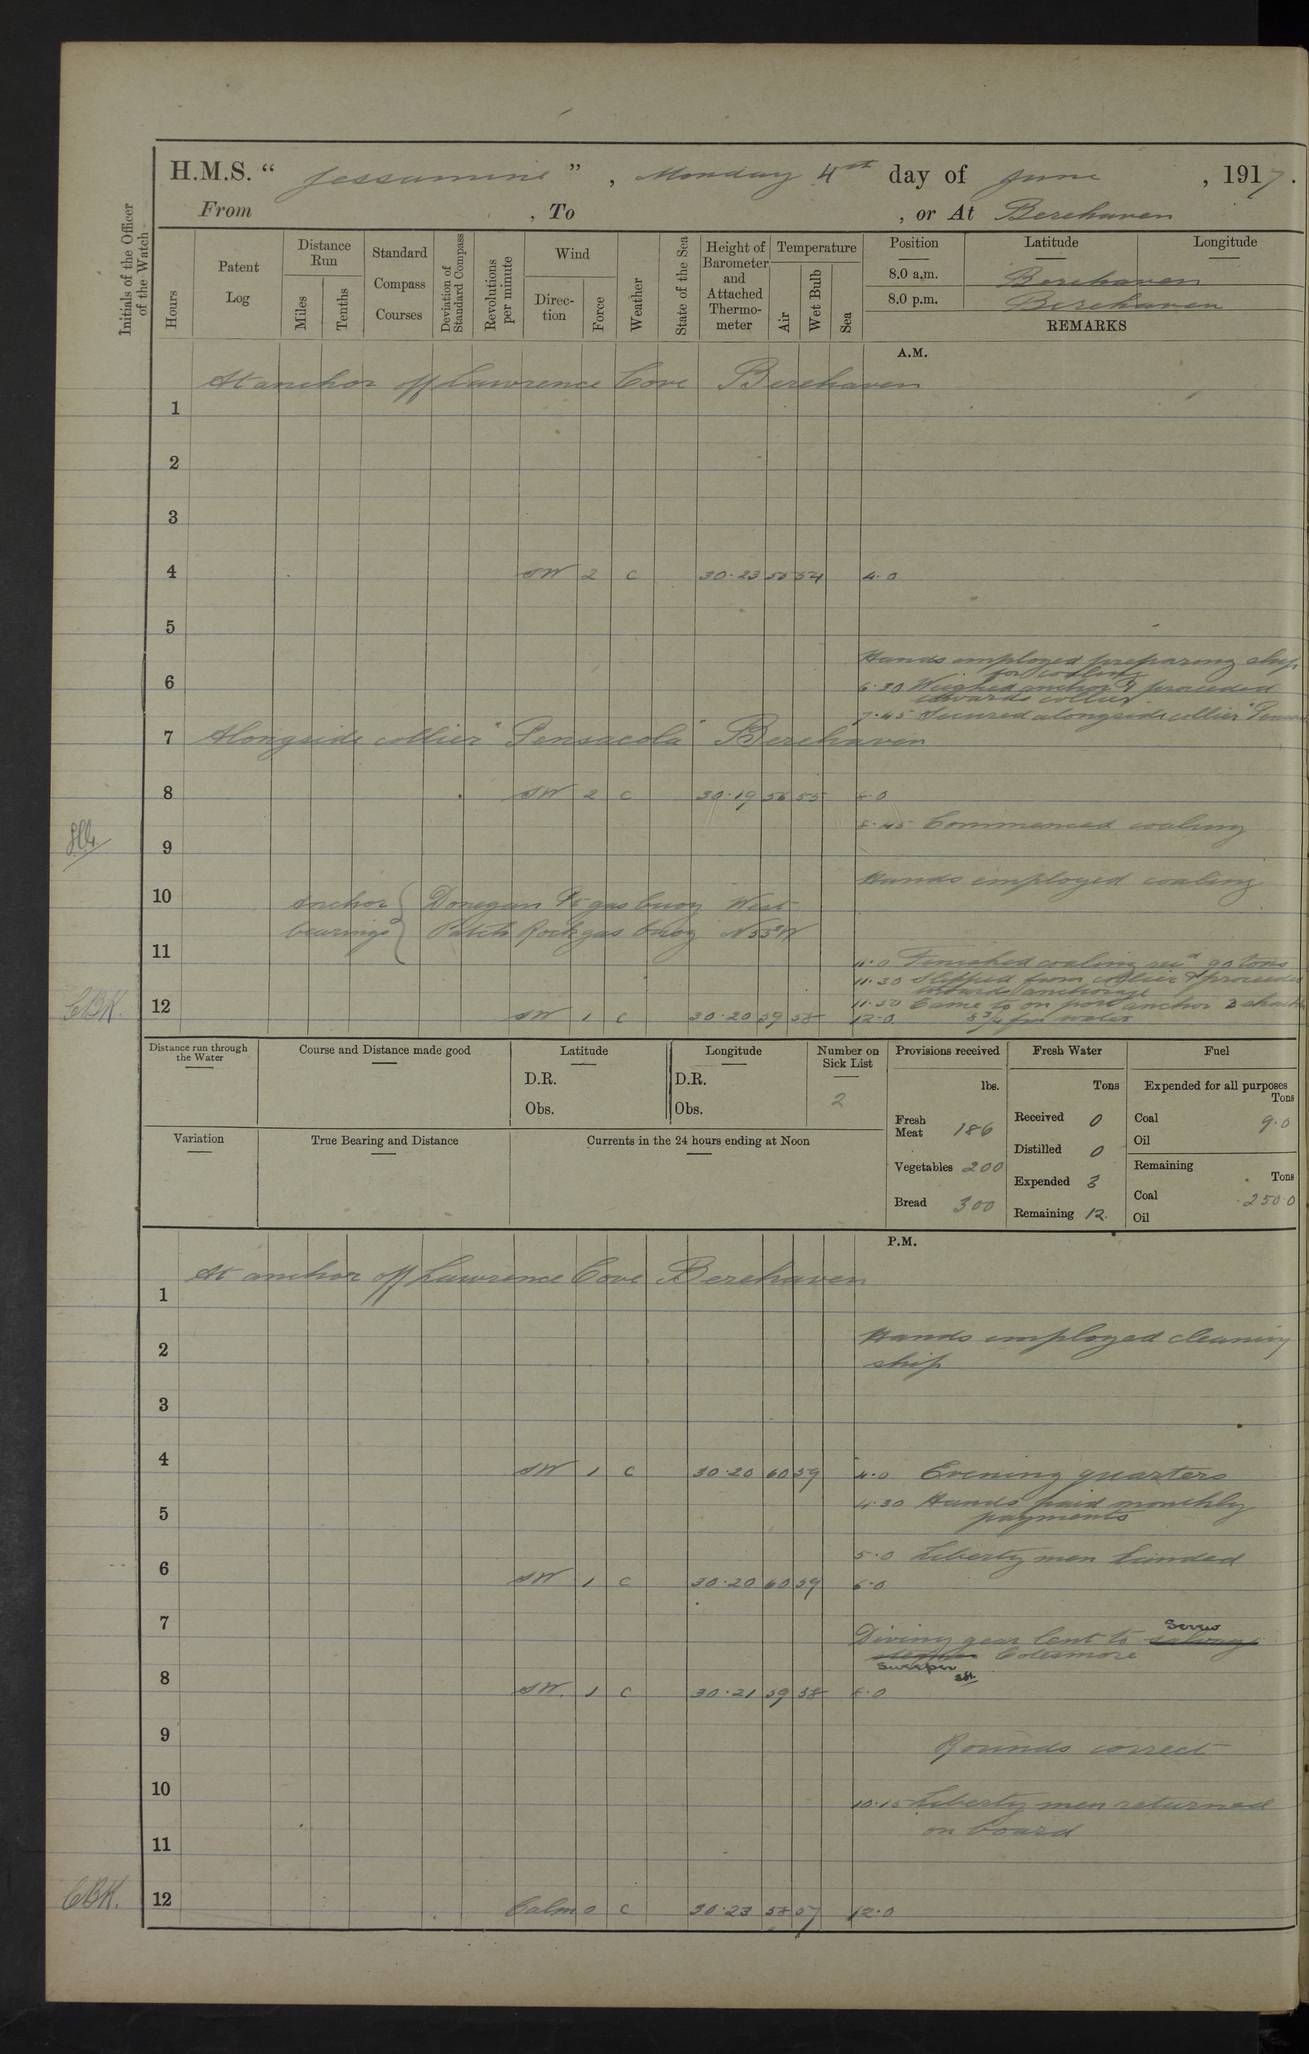 H.M.S. “ Jessamine ” , Monday 4th day of June , 1917 .
From , To , or At Berehaven
Initials of the Officer of the Watch
Hours
Patent Log
Distance Run
Miles
Tenths
Standard Compass Courses
Deviation of Standard Compass
Revolutions per minute
Wind
Direction
Force
Weather
State of the Sea
Height of Barometer and Attached Thermometer
Temperature
Air
Wet Bulb
Sea
Position Latitude Longitude
8.0 a.m. Berehaven
8.0 p.m. Berehaven
REMARKS
A.M.
At anchor off Lawrence Cove Berehaven
1
2
3
4 SW 2 c 30.23 55 54 4.0
5
Hands employed preparing ship
for coaling
6 6.30 Weighed anchor & proceeded
towards collier
7.45 Secured alongside collier
7 Alongside collier "Pensacola" Berehaven
8 SW 2 c 30.19 56 55 8.0
8.45 Commenced coaling
9
Hands employed coaling
10 Anchor bearings { Donegan Pt gas buoy West
Patch Rock gas buoy N55°W
11
11.0 Finished coaling recd 90 tons
11.30 Slipped from collier & proceeded
towards anchorage
11.50 Came to on port anchor 2
CBK. 12 SW 1 c 30.20 59 58 12.0 5¾ fm water
Distance run through the Water
Course and Distance made good
Latitude
D.R.
Obs.
Longitude
D.R.
Obs.
Number on Sick List
2
Provisions received
lbs.
Fresh Meat 186
Vegetables 200
Bread 300
Fresh Water
Tons
Received 0
Distilled 0
Expended 3
Remaining 12.
Fuel
Expended for all purposes
Tons
Coal 9.0
Oil
Remaining
Tons
Coal 250.0
Oil
Variation
True Bearing and Distance
Currents in the 24 hours ending at Noon
P.M.
At anchor off Lawrence Cove Berehaven
1
2 Hands employed cleaning
ship
3
4 SW 1 c 30.20 60 59 4.0 Evening quarters
4.30 Hands paid monthly
payments
5
5.0 Liberty men landed
6 SW 1 c 30.20 60 59 6.0
7
Diving gear lent to Screw
Sweeper Colesmore
8 SW. 1 c 30.21 59 58 8.0
9 Rounds correct
10 10.15 Liberty men returned
on board
11
CBK. 12 Calm 0 c 30.23 58 57 12.0